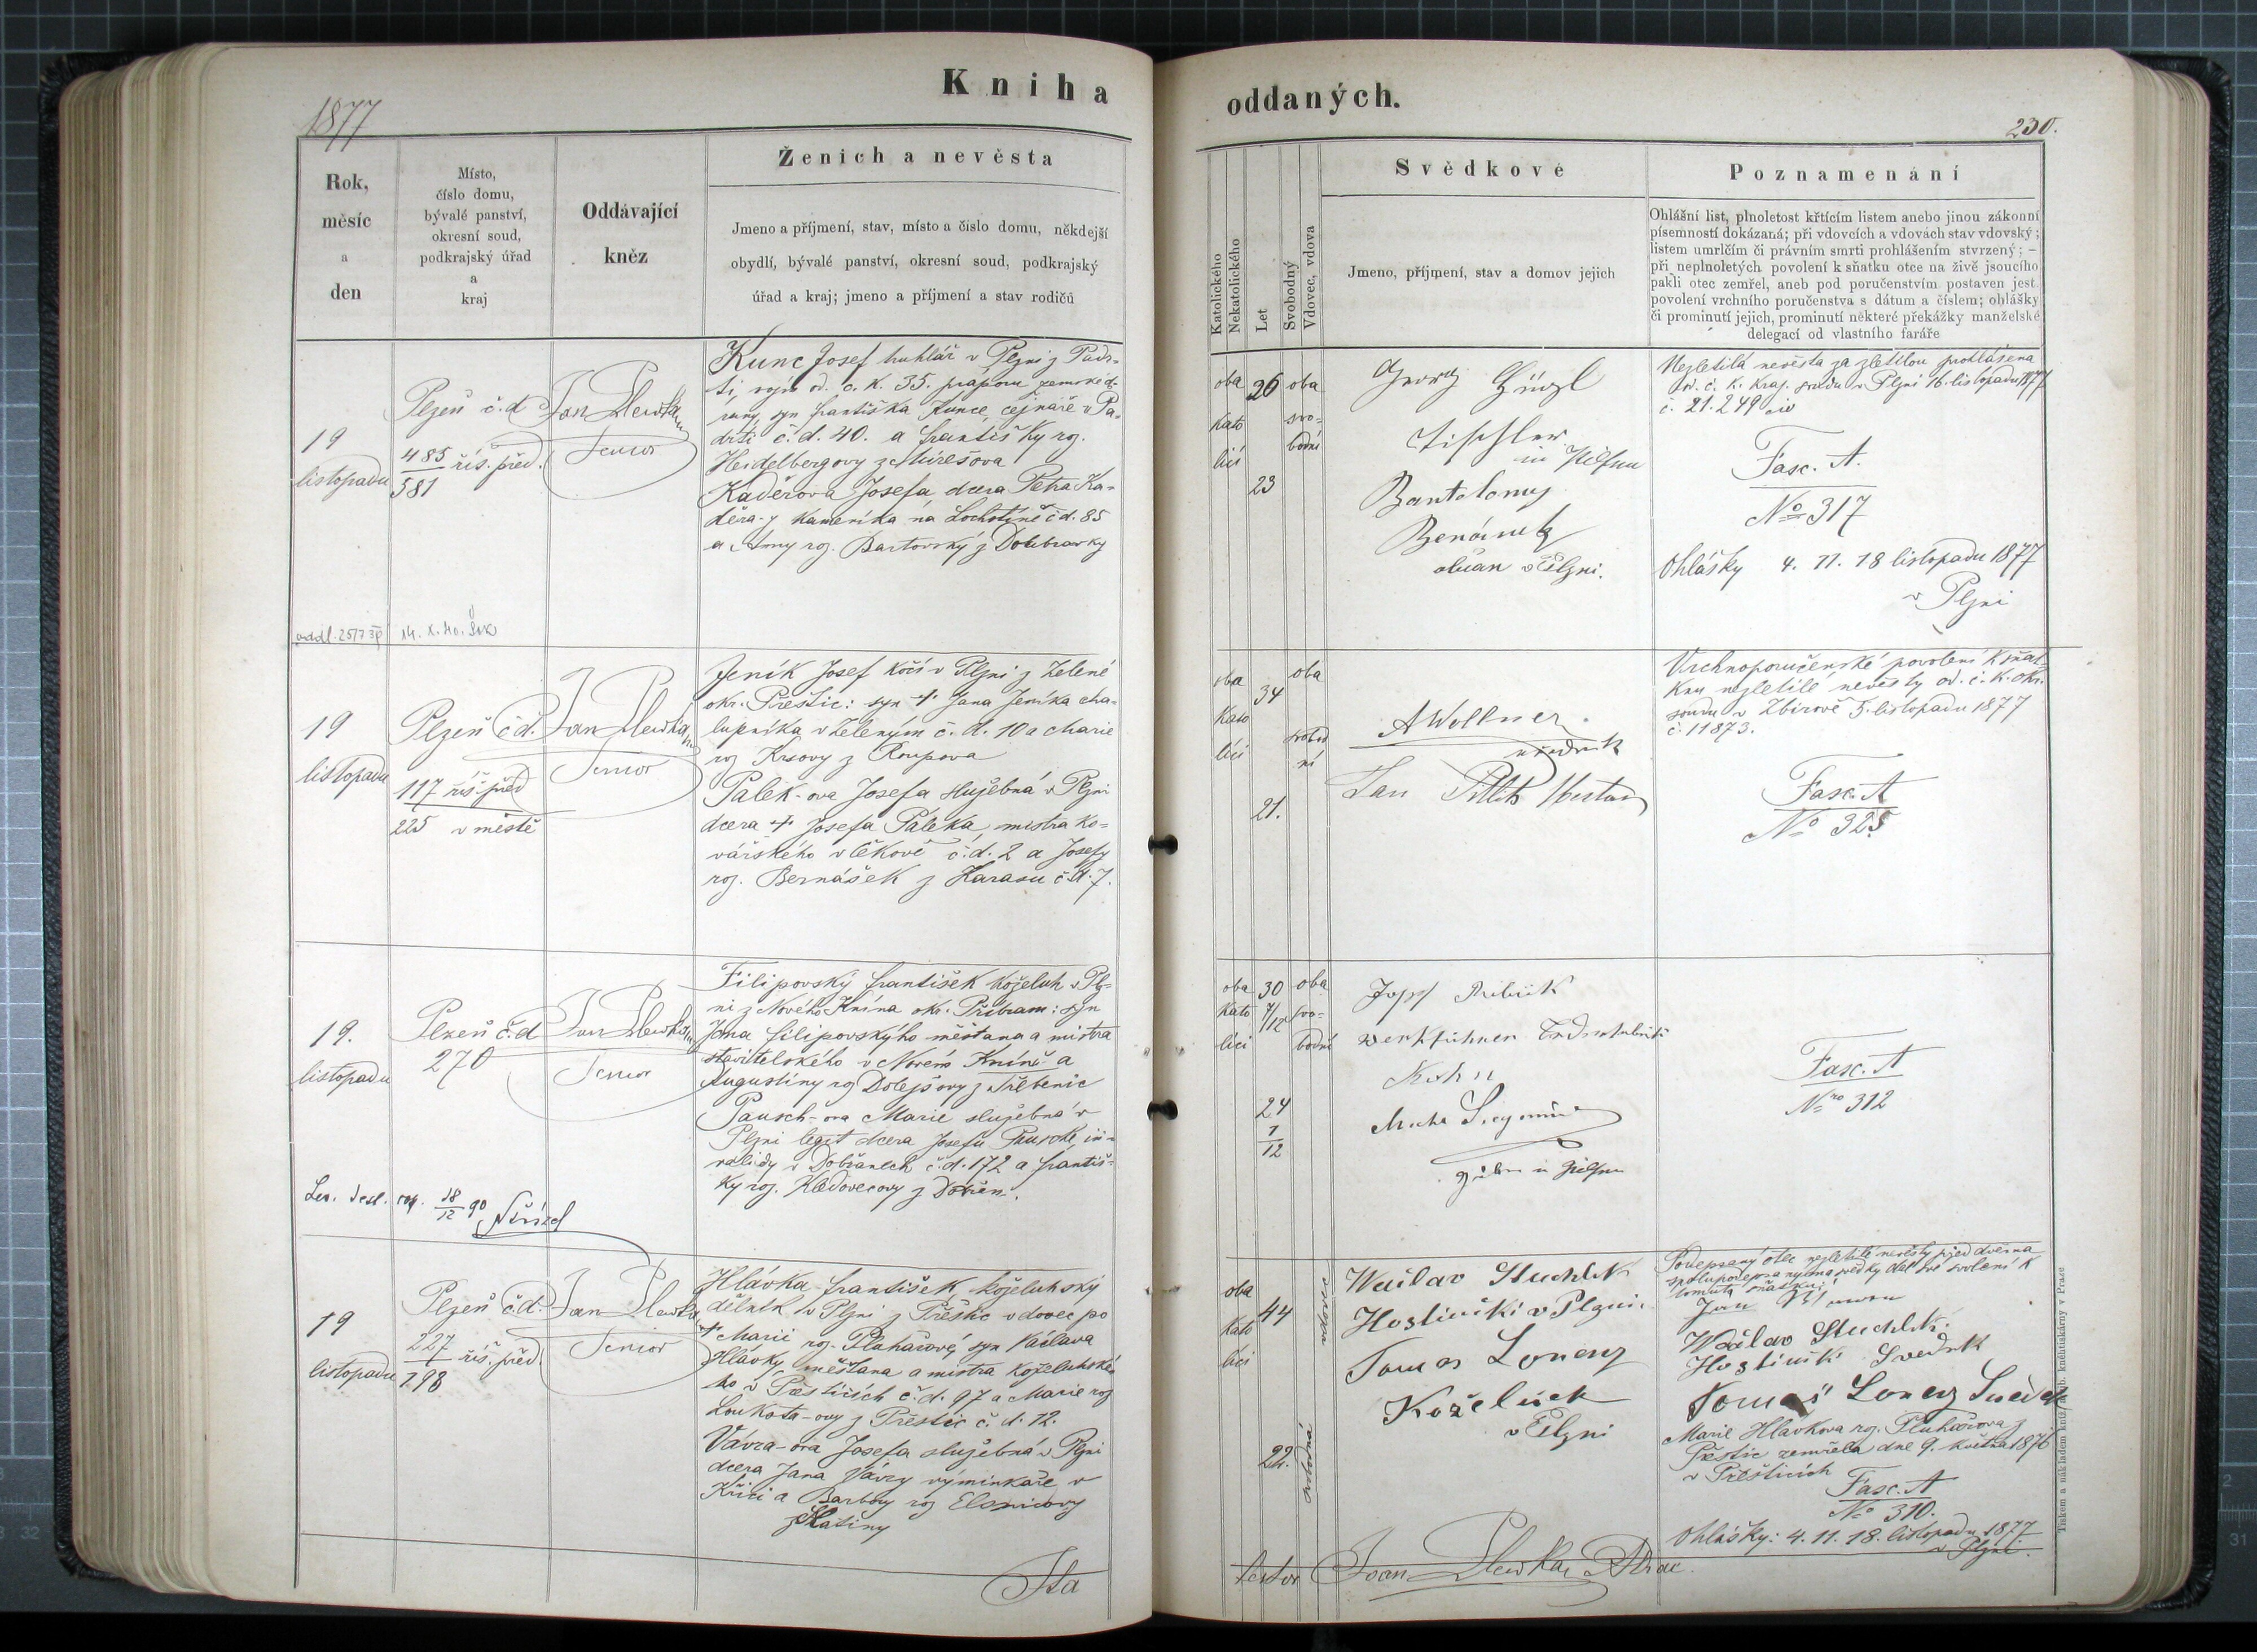 1877
Kniha
oddaných.
230.
Rok,
měsíc
a
den
Místo,
číslo domu,
bývalé panství,
okresní soud,
podkrajský úřad
a
kraj
Oddávající
kněz
Ženich a nevěsta
Jmeno a příjmení, stav, místo a číslo domu, někdejší
obydlí, bývalé panství, okresní soud, podkrajský
úřad a kraj; jmeno a příjmení a stav rodičů
Katolického
Nekatolického
Let
Svobodný
Vdovec, vdova
Svědkové
Jmeno, příjmení, stav a domov jejich
Poznamenání
Ohlášní list, plnoletost křtícím listem anebo jinou zákonní
písemností dokázaná; při vdovcích a vdovách stav vdovský;
listem umrlčím či právním smrti prohlášením stvrzený; —
při neplnoletých povolení k sňatku otce na živě jsoucího
pakli otec zemřel, aneb pod poručenstvím postaven jest
povolení vrchního poručenstva s dátum a číslem; ohlášky
či prominutí jejich, prominutí některé překážky manželské
delegací od vlastního faráře
19
listopadu
Plzeň č.d.
485 říš. před.
581
Jan Plewka
Senior
Kunc Josef truhlář v Plzni z Padr-
ti, vojín od c. k. 35. praporu zemské o-
rany, syn Františka Kunce, čejnaře v Pa-
drti č.d. 40. a Františky roz.
Heidelbergovy z Mirešova
Kaděrova Josefa, dcera Petra Ka-
děra z kameníka na Lochotíně č.d. 85
a Anny roz. Bartovský z Doubravky
oba
kato
líci
26
23
oba
svo-
bodní
Georg Günzl
Tischler
in Pilsen
Bartolomy
občan v Plzni.
Nezletilá nevěsta za zletilou prohlášena
od. c. k. kraj. soudu v Plzni 16. listopadu 1877
č. 21.249 civ
Fasc. A.
No 317
Ohlášky 4. 11. 18 listopadu 1877
v Plzni
14. X. 40.
19
listopadu
Plzeň č.d.
117 říš. před
225 v městě
Jan Plewka
Senior
Jeník Josef kočí v Plzni z Zelené
okr. Přeštic: syn + Jana Jeníka cha-
lupníka v Zeleným č. d. 10 a Marie
roz Krsovy z Roupova
Pálek-ova Josefa služebná v Plzni
dcera + Josefa Páleka, mistra ko-
vářského v Čékově č.d. 2 a Josefy
roz. Bernášek z Karasu č.d. 7.
oba
kato
líci
34
21.
oba
svobod
ní
A Wollner
uředník
Jan
Vrchnoporučenské povolení k sňat-
ku nezletilé nevěsty od. c. k. okr.
soudu v Zbirově 5. listopadu 1877
č. 11873.
Fasc. A
No 325
19.
listopadu
Plzeň č.d
270
Jan Plewka
Senior
Filipovský František koželuh v Plz-
ni z Nového Knína okr. Příbram: syn
Jana Filipovskýho měšťana a mistra
stavitelského v Novém Kníně a
Augustiny roz Dolejšovy z Třebenic
Pausch-ova Marie služebná v
Plzni legit dcera Josefa Pausche in-
validy v Dobřanech č.d. 172 a Františ-
ky roz. Kledovecovy z Dobřan.
18
12 90
oba
kato
líci
30
7/12
24
1
12
oba
svo-
bodní
Josef
Werkführer
Kohn
in Pilsen
Fasc. A
Nro 312
19
listopadu
Plzeň č.d.
227 říš. před.
198
Jan Plewka
Senior
Hlávka František, koželuhský
dělník v Plzni z Přeštic vdovec po
+ Marii roz. Pluhařové, syn Václava
Hlávky, měšťana a mistra koželuhské-
ho v Přešticích č. d. 97 a Marie roz
Loukota-ovy z Přeštic č. d. 12.
Vávra-ova Josefa služebná v Plzni
dcera Jana Vávry výminkaře v
Kříci a Barbory roz
Slatiny
oba
kato
líci
44
22.
vdovec
svobodná
Wáclav Stuchlik
Hostinski v Plzni.
Tomas Lorenz
Koželuch
v Plzni
Podepsaný otec nezletilé nevěsty před dvěma
spolupodepsanýma svědky dal své svolení k
tomuto sňatku:
Jan Wawra
Wáclav Stuchlik.
Hostinski Svědek
Tomaš Lorenz Svědek
Marie Hlavkova roz. Pluhařova z
Přeštic zemřela dne 9. května 1876
v Přešticích
Fasc. A
No 310.
Ohlášky: 4. 11. 18. listopadu 1877
v Plzni.
Ita
testor Joan Plewka,
Tiskem a nákladem kníž. arcib. knihtiskárny v Praze